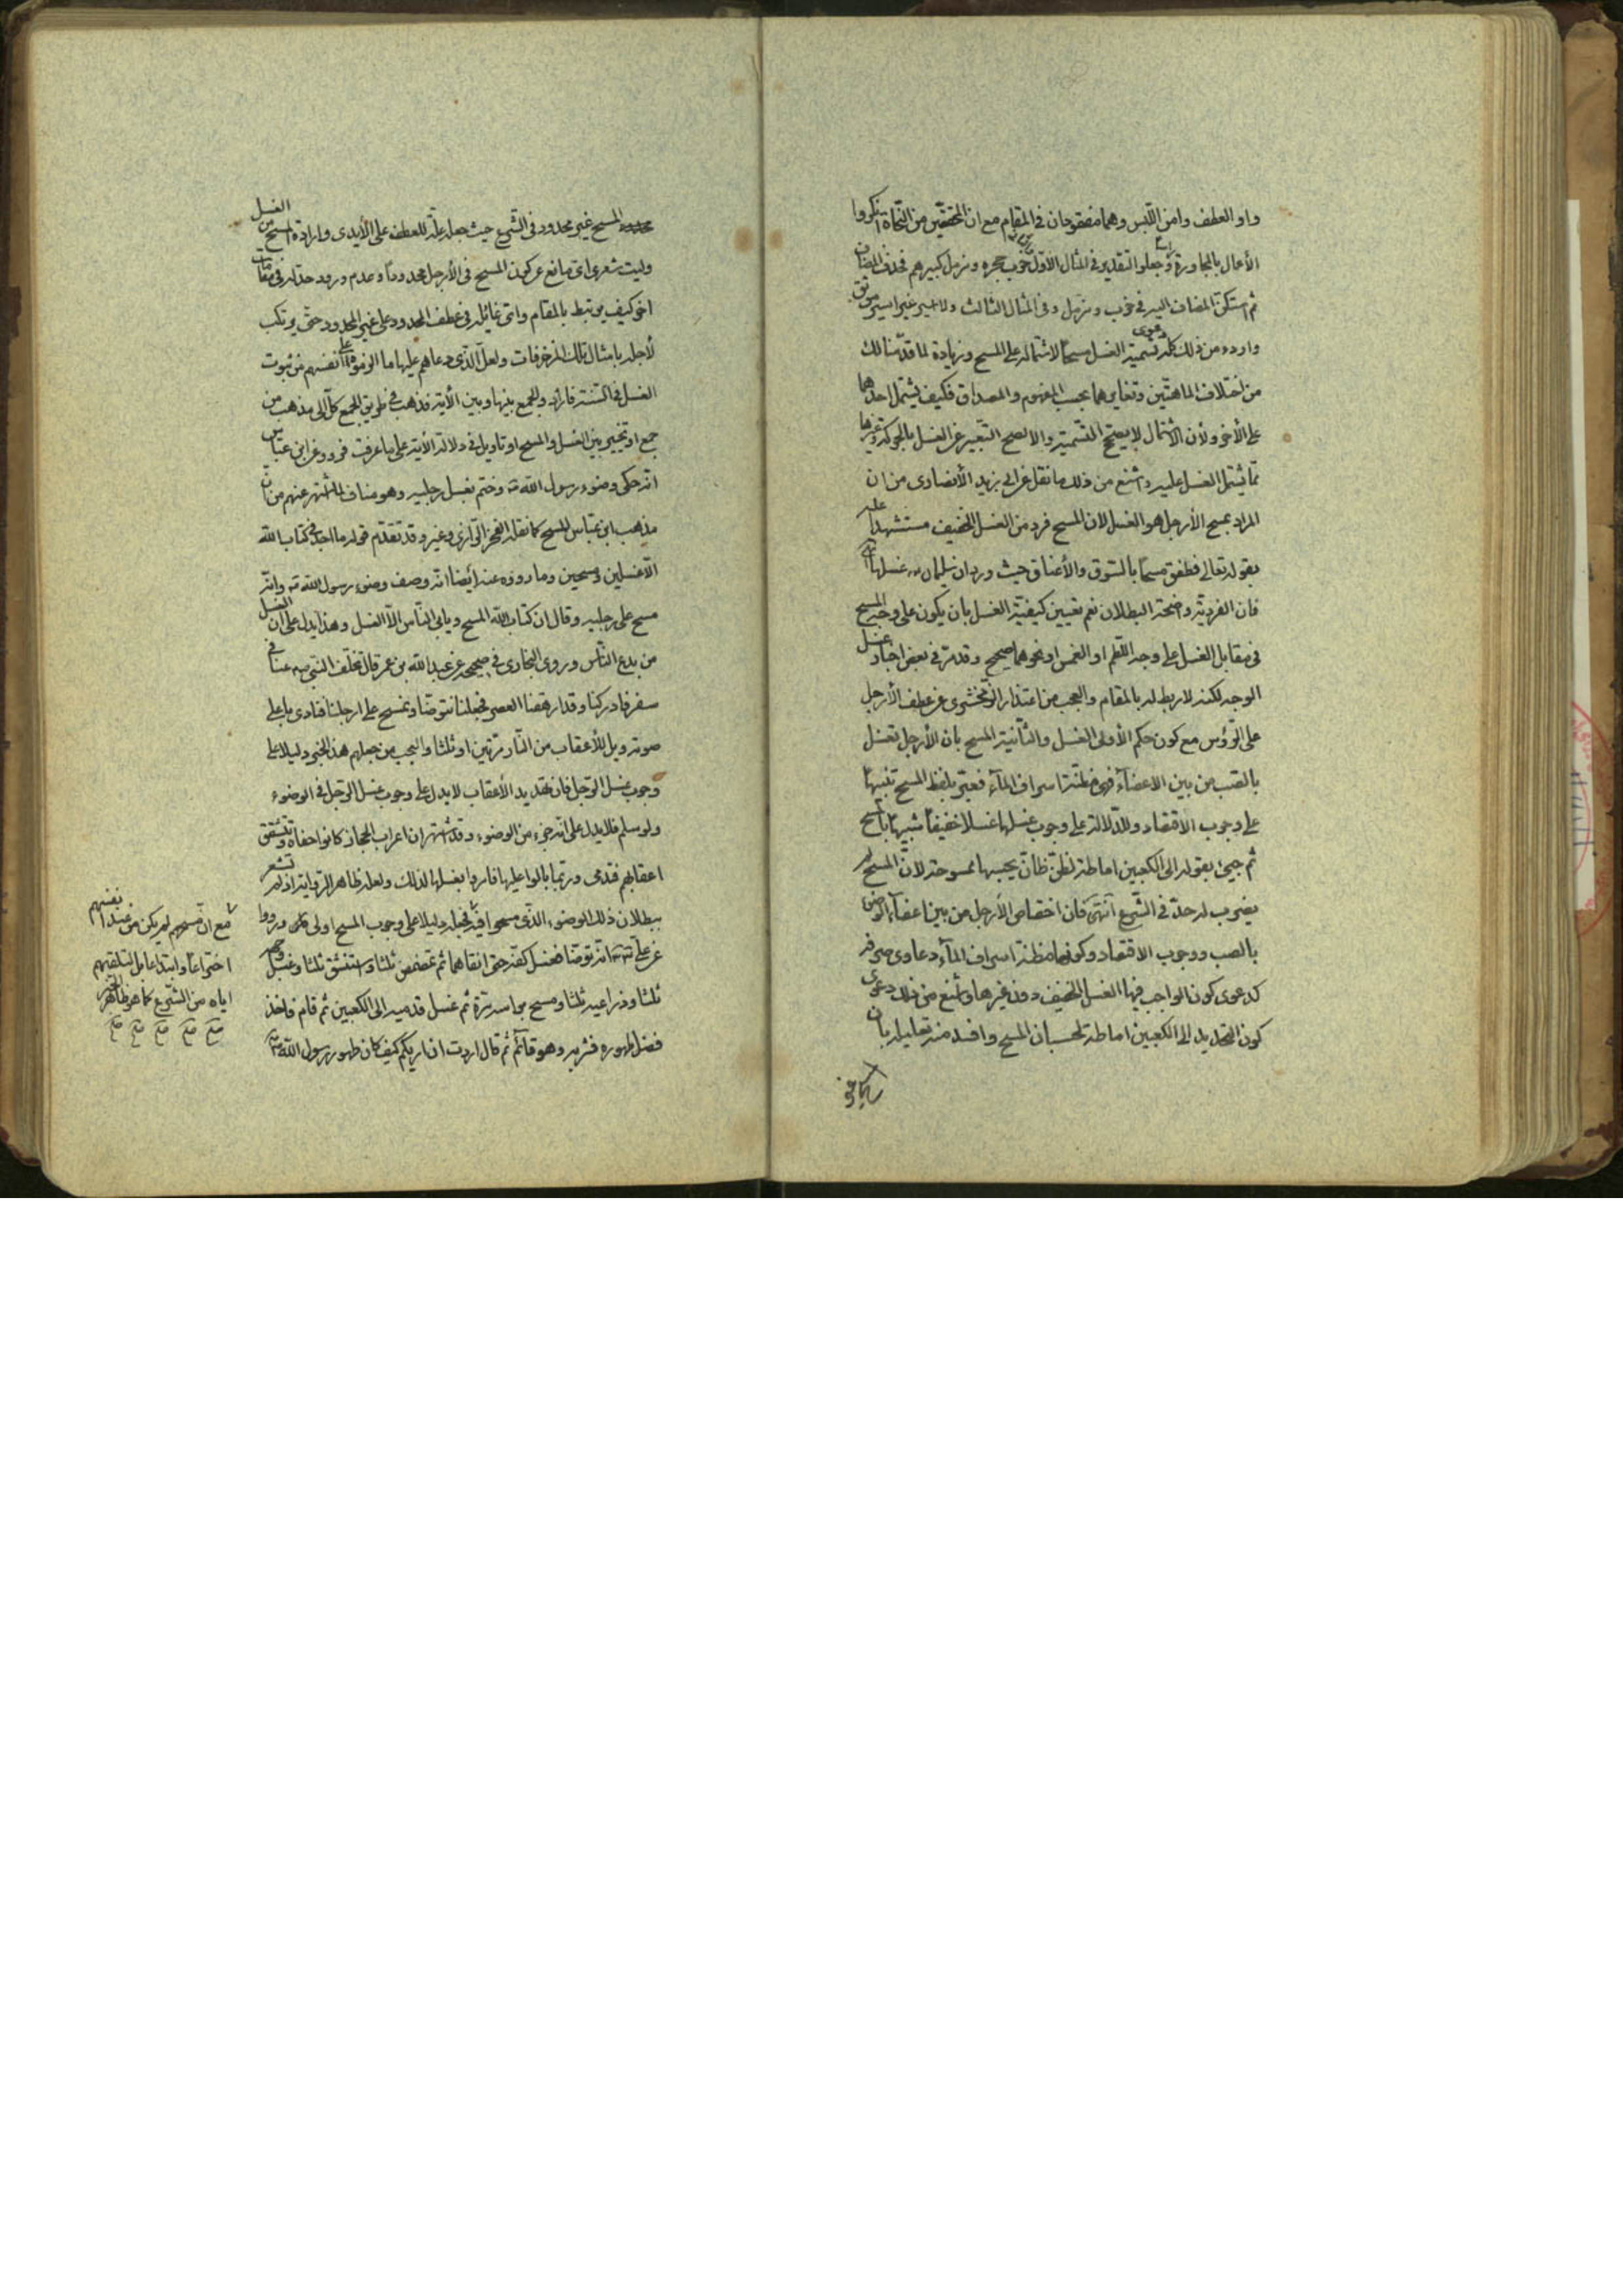 واو العطف وامن اللبس وهما مفقودان في المقام مع ان المحققين من النحاة انكروا
الأعمال بالمجاورة وجعلوا التقدير في المثال الأول خرب جحره ومزمل كبيرهم فحذف المضاف
ثم استكن المضاف اليه في خرب ومزمل وفي المثال الثالث ولا غير اسير موثق
واردء من ذلك كله دعوى تسمية الغسل مسحا لاشتماله على المسح وزيادة لما قدمنا لك
من اختلاف الماهيتين وتغايرهما بحسب المفهوم والمصداق فكيف يشتمل احدهما
على الأخر ولأن الاشتمال لا يصحح التسمية والا لصح التعبير عن الغسل بالحركة وغيرها
مما يشتمل الغسل عليه واشنع من ذلك ما نقل عن ابي زيد الأنصاري من ان
المراد بمسح الأرجل هو الغسل لان المسح فرد من الغسل الخفيف مستشهدا عليه
بقوله تعالى فطفق مسحا بالسوق والأعناق حيث ورد ان سليمان غسلها
فان الفردية واضحة البطلان نعم تعيين كيفية الغسل بان يكون على وجه المسح
في مقابل الغسل على وجه اللطم او الغمس او نحوهما صحيح وقد مر في بعض اخبار غسل
الوجه لكنه لا ربط له بالمقام والعجب من اعتذار الزمخشري عن عطف الأرجل
على الرؤس مع كون حكم الأولى الغسل والثانية المسح بان الأرجل تغسل
بالصب من بين الاعضاء فهي مظنة اسراف الماء فعبر بلفظ المسح تنبيها
على وجوب الاقتصاد وللدلالة على وجوب غسلها غسلا خفيفا شبيها بالمسح
ثم جيئ بقوله الى الكعبين اماطة لظن ظان يحسبها ممسوحة لان المسح لم
يضرب له حد في الشرع انتهى فان اختصاص الأرجل من بين اعضاء الوضوء
بالصب ووجوب الاقتصاد وكونها مظنة اسراف الماء دعاوى صرفة
كدعوى كون الواجب فيها الغسل الخفيف دون غيرها واشنع من ذلك دعوى
كون التحديد الى الكعبين اماطة لحسبان المسح وافسد منه تعليله بان
المسح غير محدود في الشرع حيث جعله علة للعطف على الأيدي وارادة المسح من الغسل
وليت شعري اي مانع عن كون المسح في الأرجل محدودا وعدم ورود حد له في مقامات
اخر كيف يرتبط بالمقام واي غائلة في عطف المحدود على غير المحدود حتى يرتكب
لأجله بامثال تلك المزخرفات ولعل الذي دعاهم عليها ما الزموه على انفسهم من ثبوت
الغسل في السنة فارادوا الجمع بينها وبين الأية فذهب في طريق الجمع كل الى مذهب من
جمع او تخيير بين الغسل والمسح او تاويل في دلالة الأية على ما عرفت فرووا عن ابن عباس
انه حكى وضوء رسول الله وختم بغسل رجليه وهو مناف لما اشتهر عنهم من ان
مذهب ابن عباس المسح كما نقله الفخر الرازي وغيره وقد تقدم قوله ما اجد في كتاب الله
الا غسلين ومسحين وما رووه عنه أيضا انه وصف وضوء رسول الله وانه
مسح على رجليه وقال ان كتاب الله المسح ويابى الناس الا الغسل وهذا يدل على ان الغسل
من بدع الناس وروى البخاري في صحيحه عن عبد الله بن عمر قال تخلف النبي عنا في
سفر فادركنا وقد ارهقنا العصر فجعلنا نتوضا ونمسح على ارجلنا فنادى باعلى
صوته ويل للأعقاب من النار مرتين او ثلثا والعجب من جعلهم هذا الخبر دليلا على
وجوب غسل الرجل فان تهديد الأعقاب لا يدل على وجوب غسل الرجل في الوضوء
ولو سلم فلا يدل على انه جزء من الوضوء وقد اشتهر ان اعراب الحجاز كانوا حفاة وتشقق
اعقابهم فتدمى وربما بالوا عليها فامروا بغسلها لذلك ولعله ظاهر الرواية اذ لم تشعر
ببطلان ذلك الوضوء الذي مسحوا فيه فجعله دليلا على وجوب المسح اولى ورووا
عن علي انه توضا فغسل كفيه حتى انقاهما ثم تمضمض ثلثا واستنشق ثلثا وغسل وجهه
ثلثا وذراعيه ثلثا ومسح براسه مرة ثم غسل قدميه الى الكعبين ثم قام فاخذ
فضل طهوره فشربه وهو قائم ثم قال اردت ان اريكم كيف كان طهور رسول الله
مع ان مسحهم لم يكن من عند انفسهم
اختراعا وابتداعا بل لتلقيهم
اياه من الشرع كما هو ظاهر الخبر